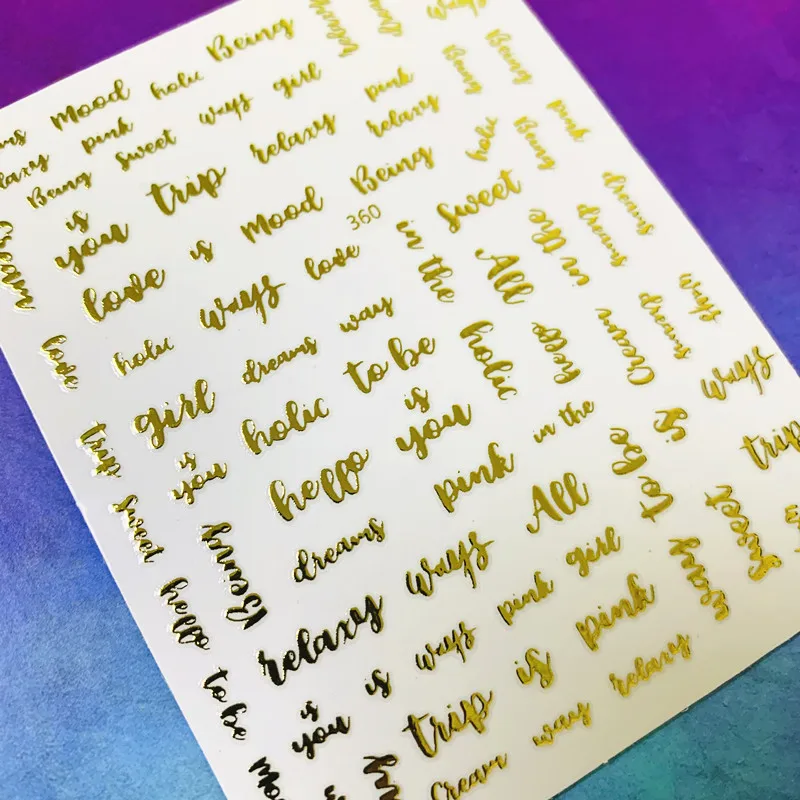 Mood holic Being ways
pink sweet ways girl pink Being Being
Being trip relaxy relaxy holic Being pink
Cream is you love is Mood Being 360 sweet dreams dreams
love holic ways love in the All in the
girl dreams way holic hello Cream dreams ways
trip is you holic to be
sweet hello is you pink in the to be is ways
hello Being dreams ways All sweet trip
to be relaxy ways pink girl
is you is trip is pink relaxy
Cream way